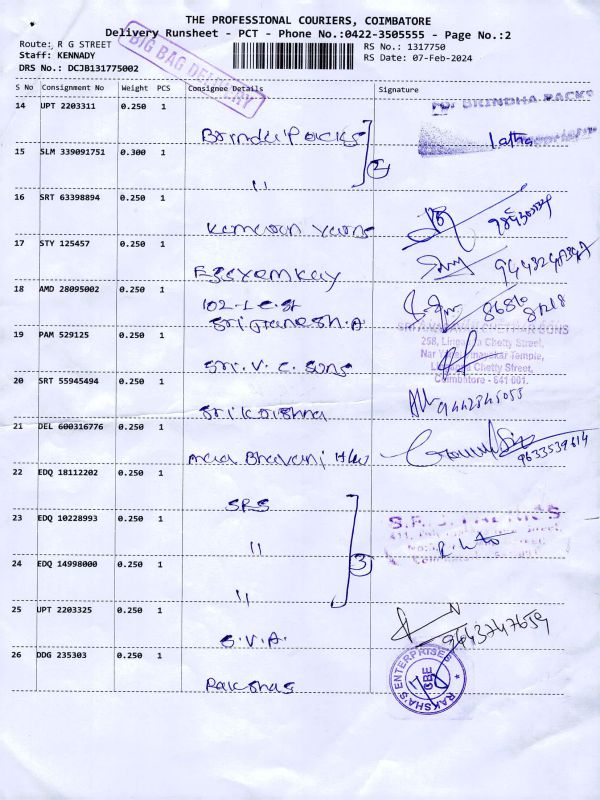 THE PROFESSIONAL COURIERS, COIMBATORE
Delivery Runsheet - PCT - Phone No.:0422-3505555 - Page No.:2
Route: R G STREET
Staff: KENNADY
DRS No.: DCJB131775002
RS No.: 1317750
RS Date: 07-Feb-2024
BIG BAG DELIVERY
S No Consignment No Weight PCS Consignee Details Signature
14 UPT 2203311 0.250 1
Brinda Packs
For BRINDHA PACKS
Latha
15 SLM 339091751 0.300 1
"
2
16 SRT 63398894 0.250 1
Kemavan Yarns
17 STY 125457 0.250 1
Esskyemkay
18 AMD 28095002 0.250 1
102-L C.st
Sri Ganesh.A
86810
81218
19 PAM 529125 0.250 1
Sri. V. C. Sons
CHETTIAR SONS
258, Lingappa Chetty Street,
Temple,
Chetty Street,
Coimbatore - 641 001.
20 SRT 55945494 0.250 1
Sri Krishna
9442845055
21 DEL 600316776 0.250 1
maa Bhavani H/w
9633539614
22 EDQ 18112202 0.250 1
SRS
23 EDQ 10228993 0.250 1
"
3
24 EDQ 14998000 0.250 1
"
25 UPT 2203325 0.250 1
S.V.A.
9443747659
26 DDG 235303 0.250 1
Rakshas
RAKSHA'S ENTERPRISES
CBE